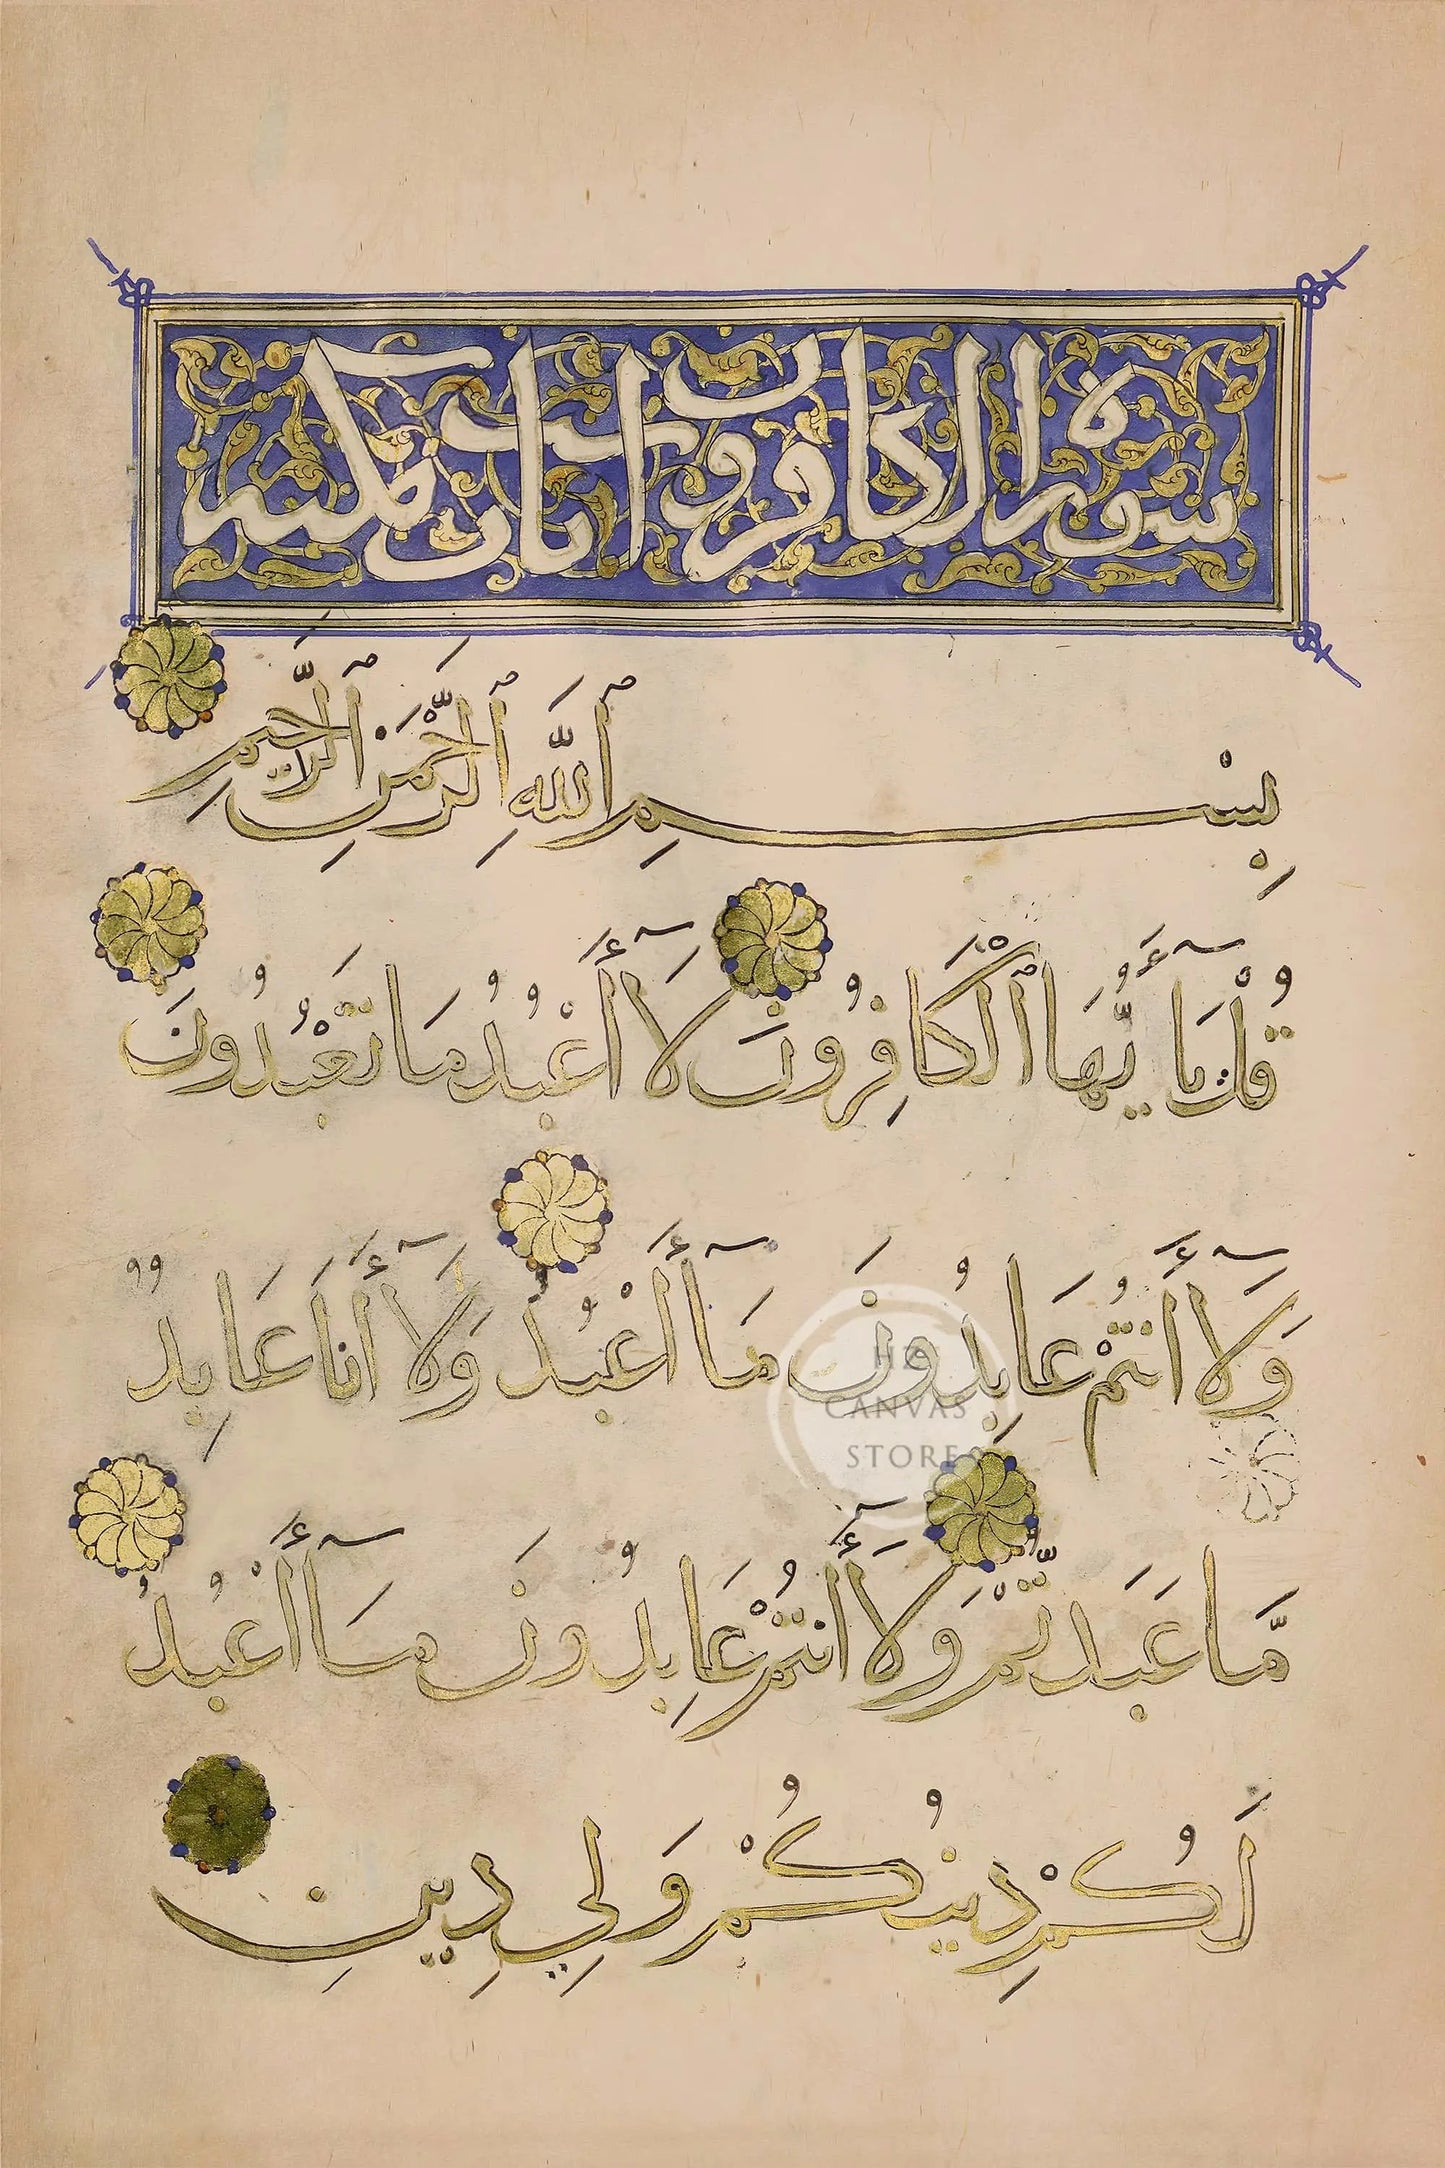 سورة الكافرون ست ايات مكية
بِسْمِ ٱللَّهِ ٱلرَّحْمَٰنِ ٱلرَّحِيمِ
قُلْ يَا أَيُّهَا ٱلْكَافِرُونَ لَا أَعْبُدُ مَا تَعْبُدُونَ
وَلَا أَنتُمْ عَابِدُونَ مَا أَعْبُدُ وَلَا أَنَا عَابِدٌ
مَّا عَبَدتُّمْ وَلَا أَنتُمْ عَابِدُونَ مَا أَعْبُدُ
لَكُمْ دِينُكُمْ وَلِيَ دِينِ
HZ
CANVAS
STORE